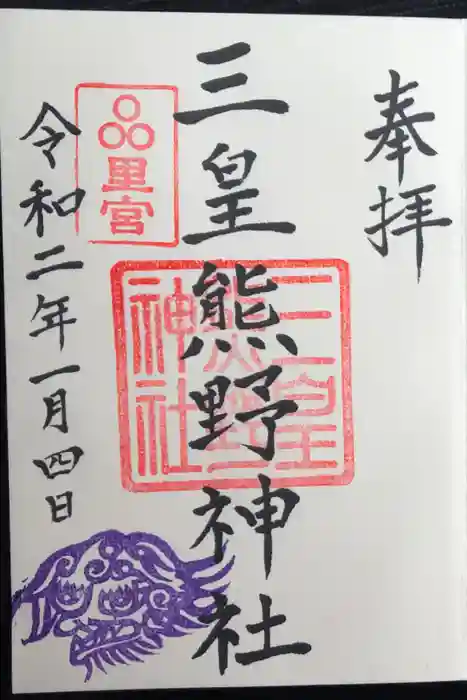 奉拝
三皇熊野神社
里宮
三皇熊野神社
令和二年一月四日